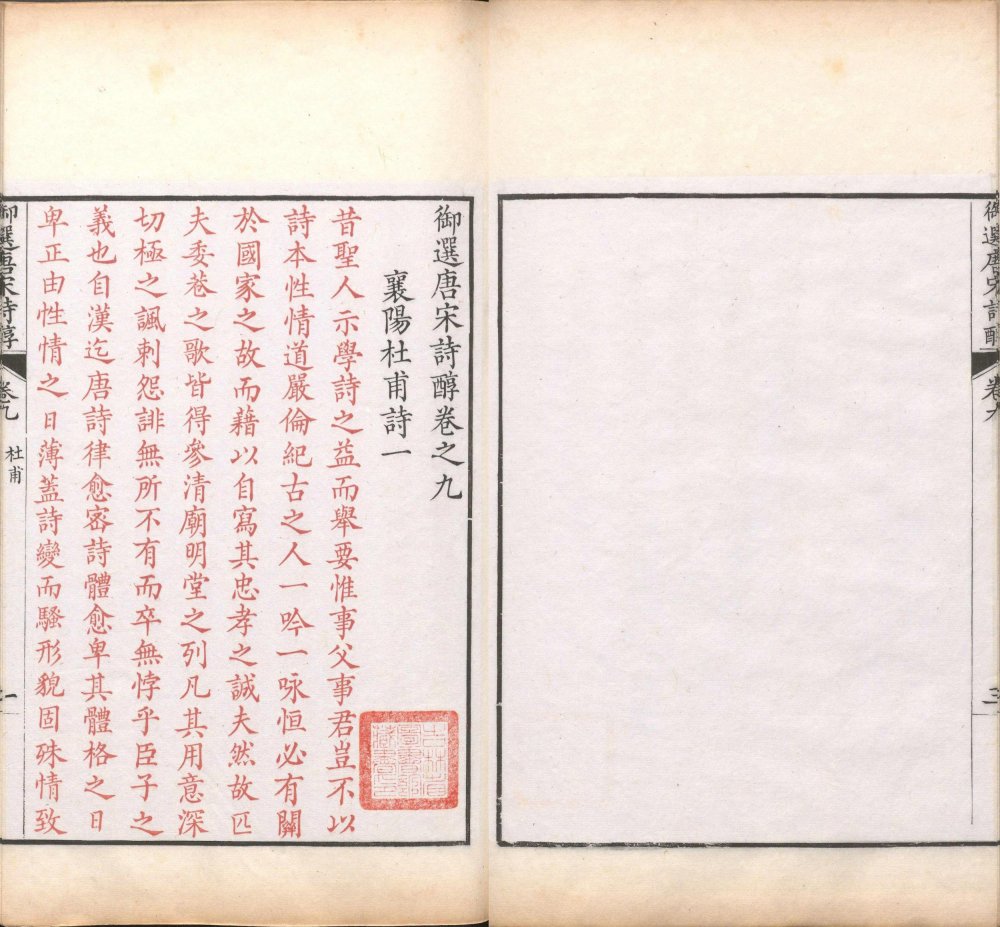 御選唐宋詩醇
卷九
三
御選唐宋詩醇卷之九
襄陽杜甫詩一
昔聖人示學詩之益而舉要惟事父事君豈不以
詩本性情道嚴倫紀古之人一吟一咏恒必有關
於國家之故而藉以自寫其忠孝之誠夫然故匹
夫委巷之歌皆得參清廟明堂之列凡其用意深
切極之諷刺怨誹無所不有而卒無悖乎臣子之
義也自漢迄唐詩律愈密詩體愈卑其體格之日
卑正由性情之日薄蓋詩變而騷形貌固殊情致
御選唐宋詩醇
卷九
杜甫
一
吉林省圖書館藏書印